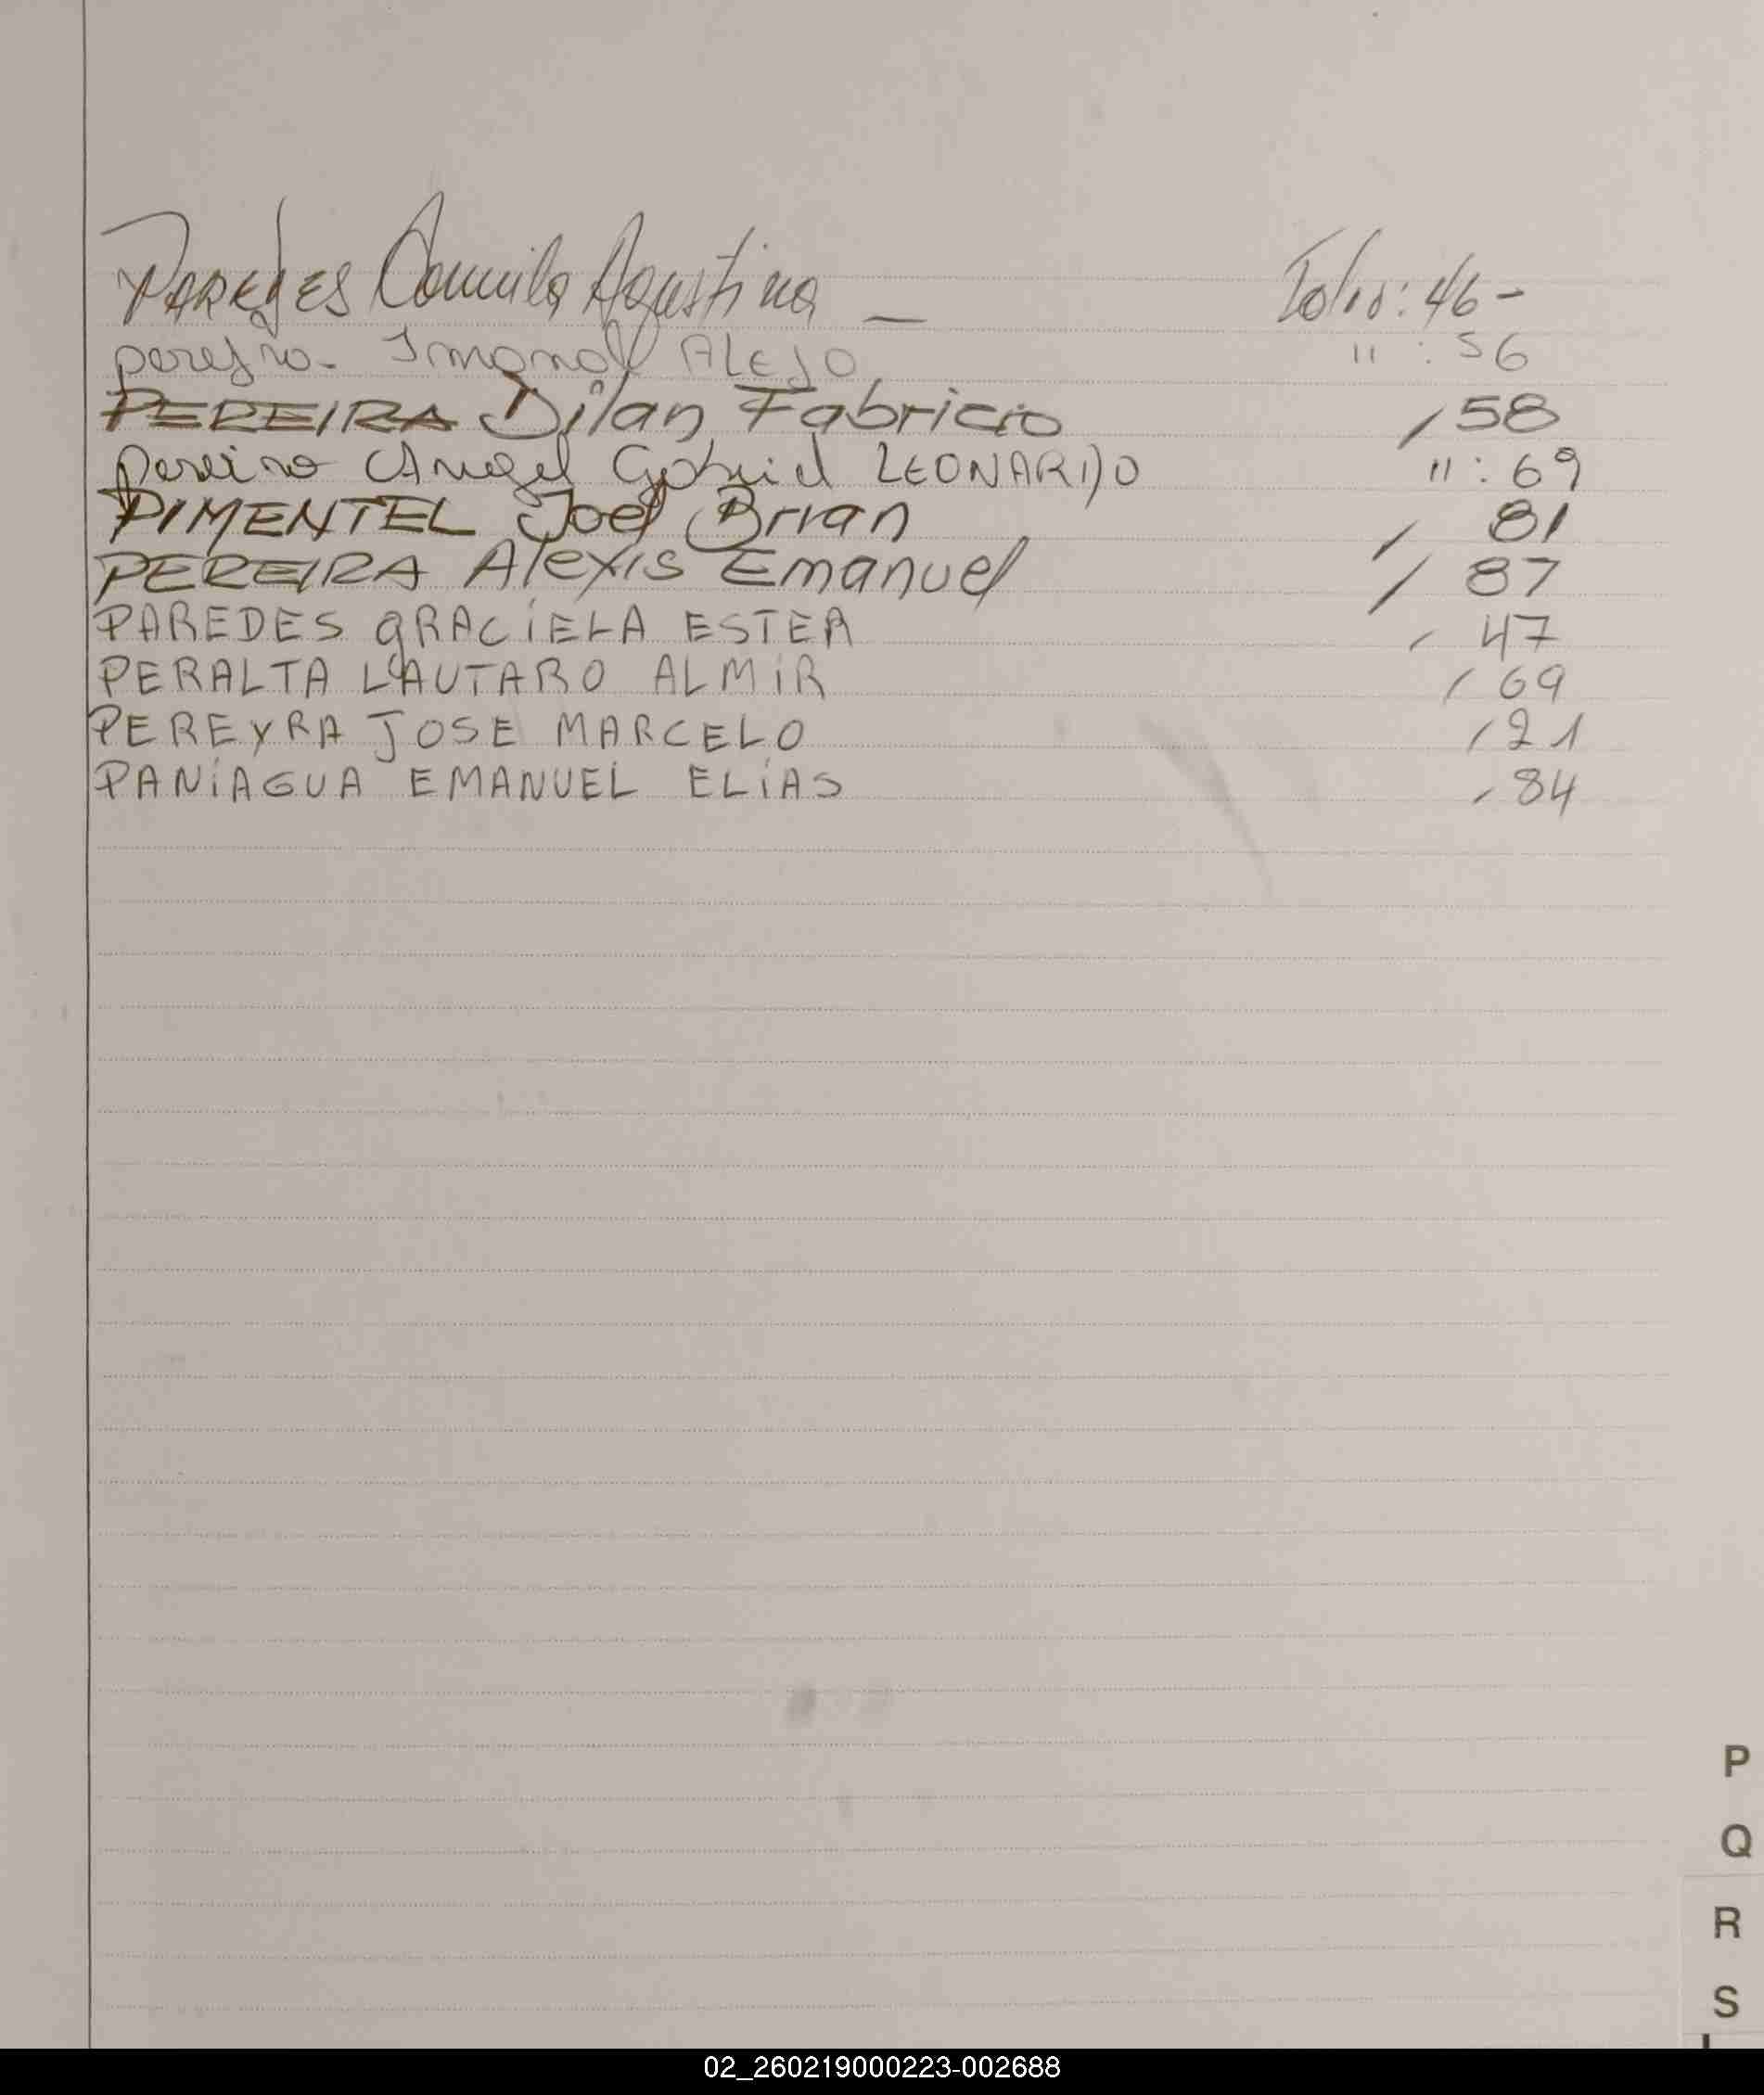 PAREDES Camila Agustina — Folio: 46-
pereyra. Imanol ALEJO 11 : 56
PEREIRA Dilan Fabricio / 58
Pereira Angel Gabriel LEONARDO 11 : 69
PIMENTEL Joel Brian / 81
PEREIRA Alexis Emanuel / 87
PAREDES GRACIELA ESTER / 47
PERALTA LAUTARO ALMIR / 69
PEREYRA JOSE MARCELO / 21
PANIAGUA EMANUEL ELIAS / 84
P
Q
R
S
02_260219000223-002688